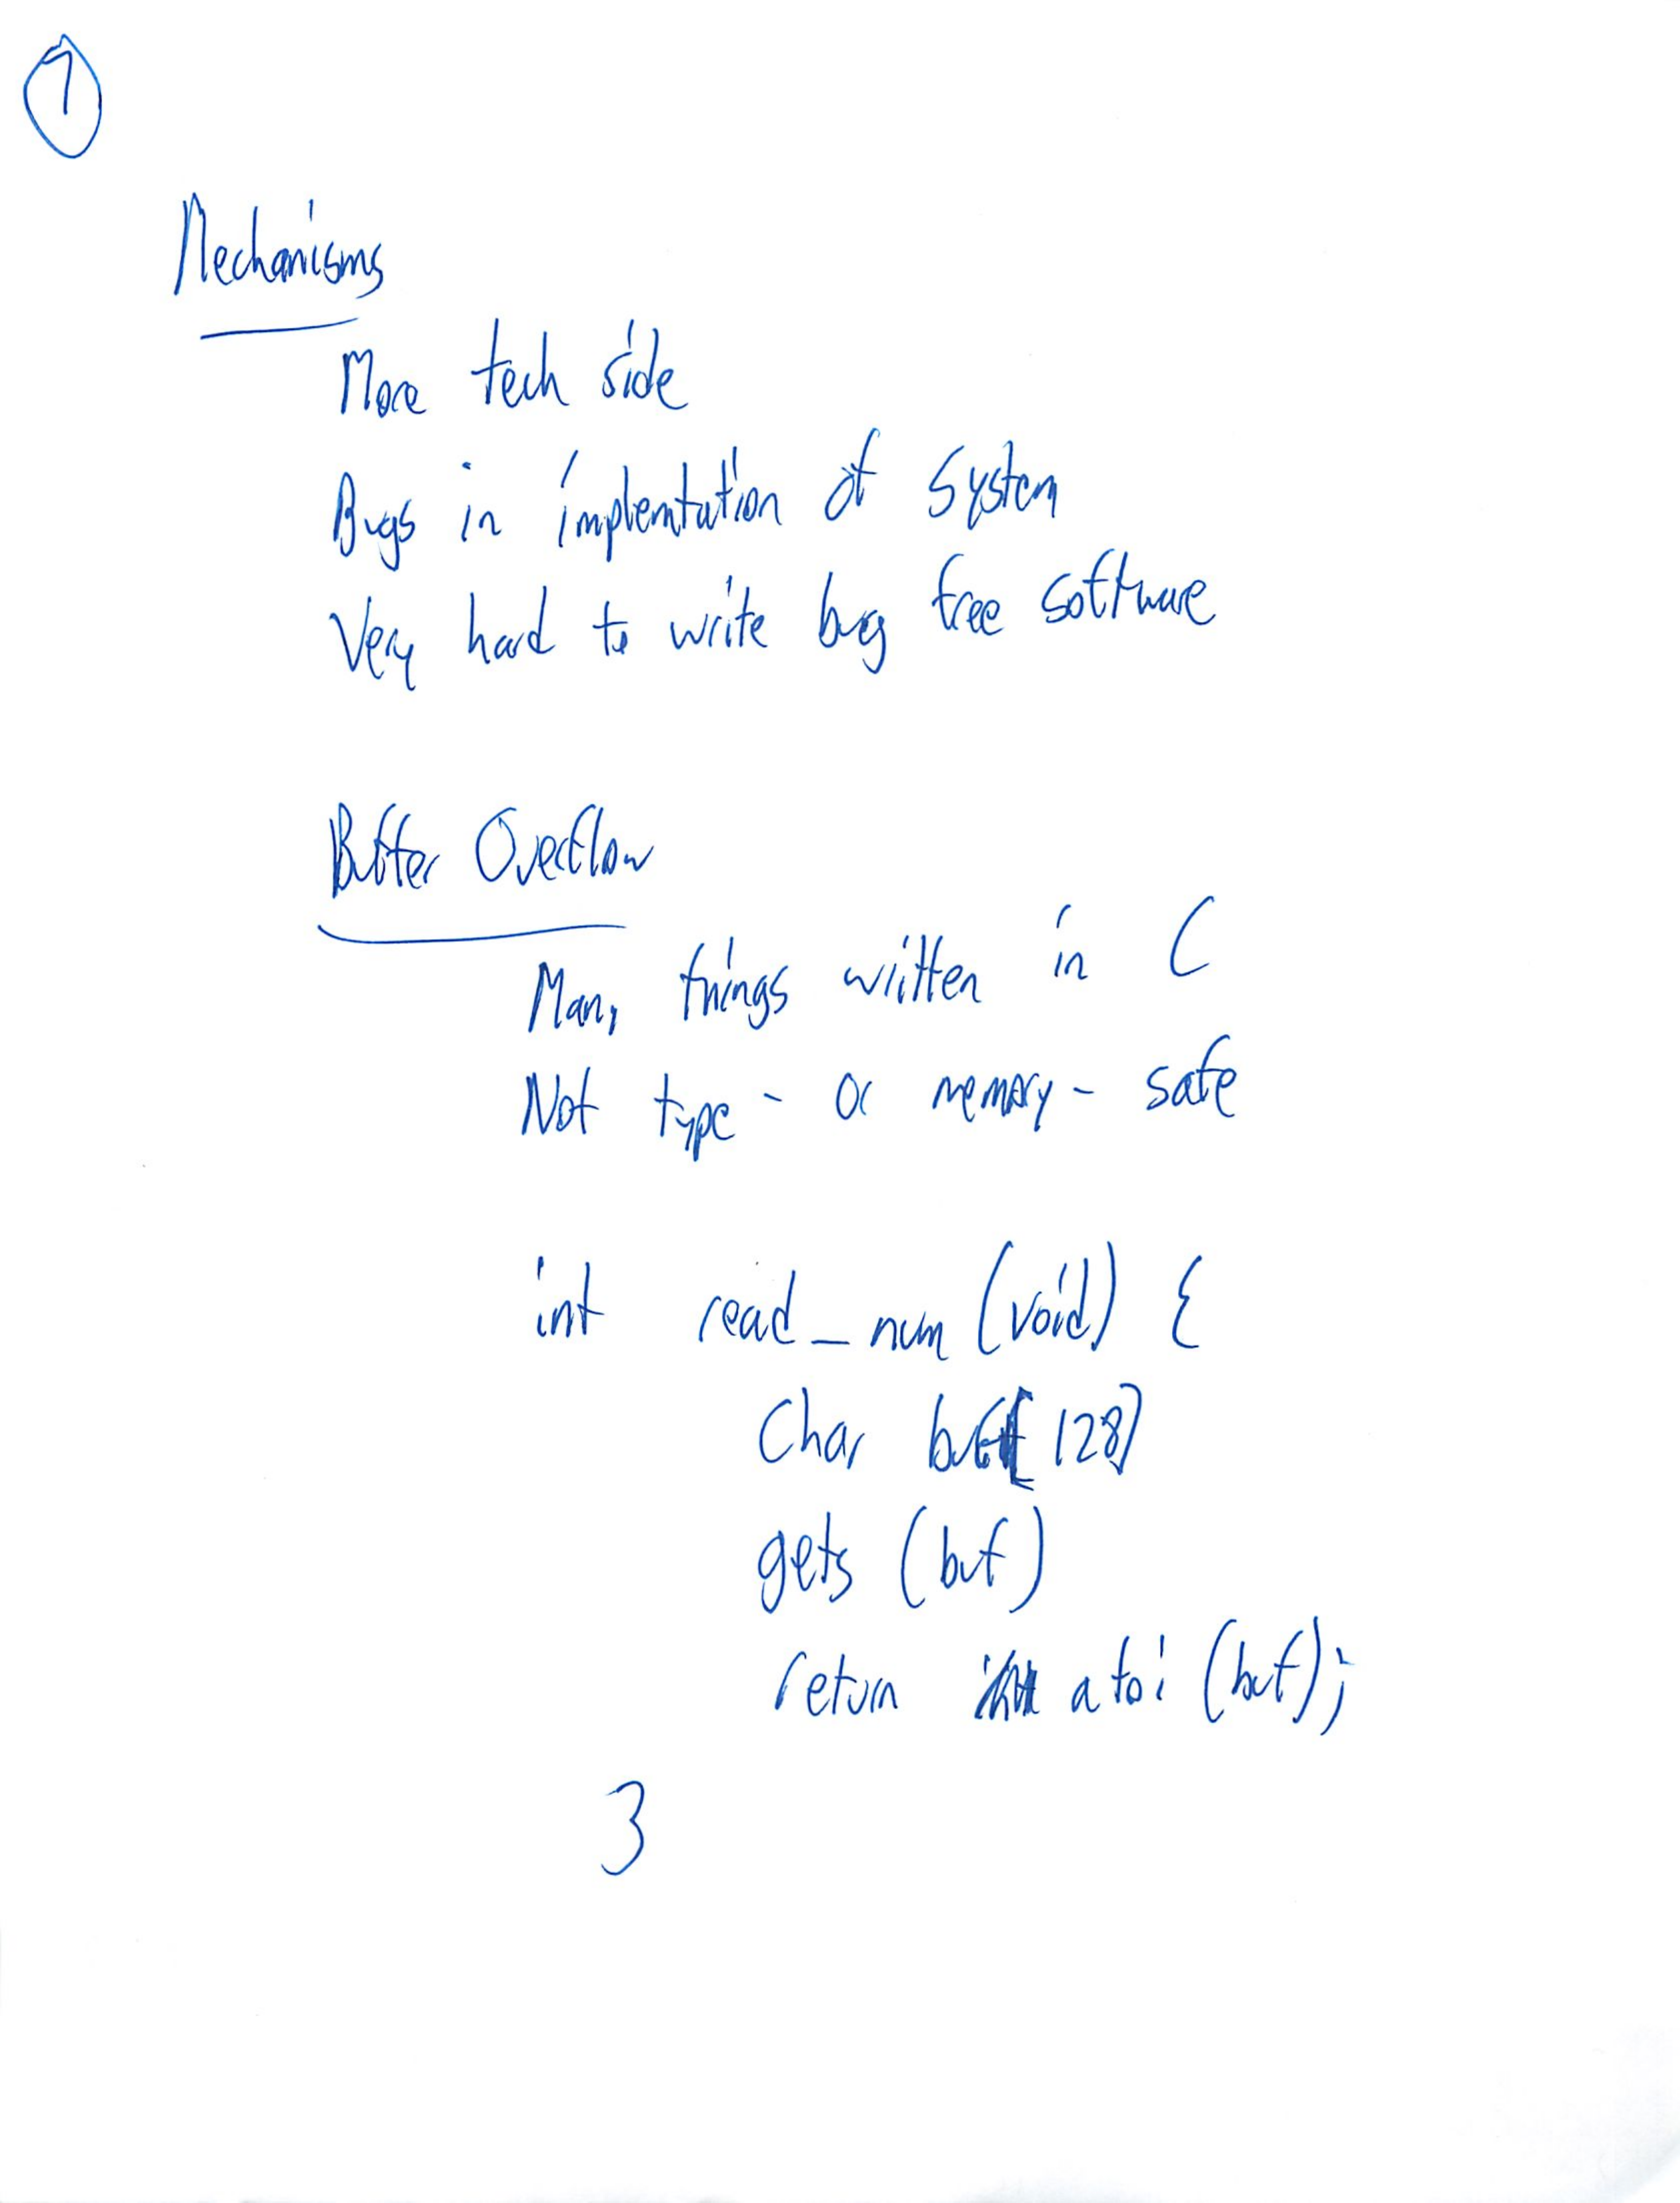 7
Mechanisms
More tech side
Bugs in implemtation of system
Very hard to write bug free software
Buffer Overflow
Many things written in C
Not type - or memory - safe
int read_num (void) {
Char buf[128]
gets (buf)
return atoi (buf);
}